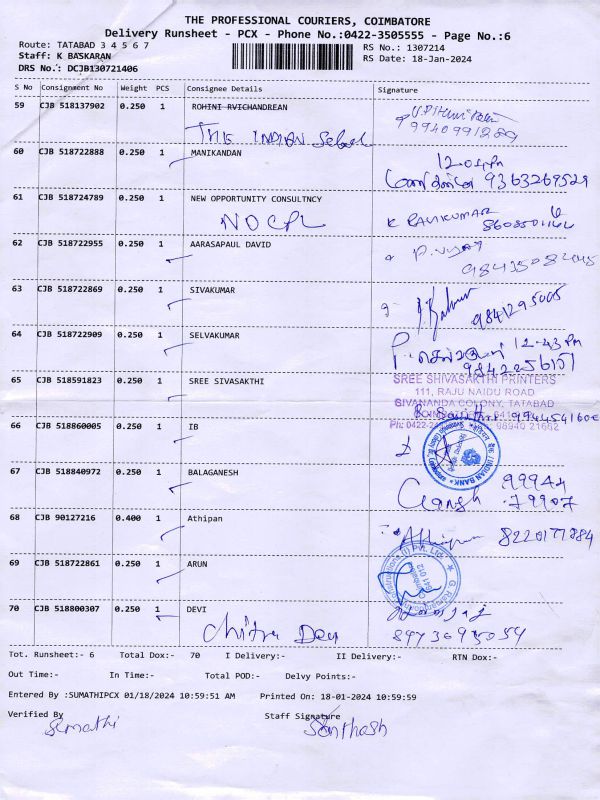 THE PROFESSIONAL COURIERS, COIMBATORE
Delivery Runsheet - PCX - Phone No.:0422-3505555 - Page No.:6
Route: TATABAD 3 4 5 6 7 RS No.: 1307214
Staff: K BASKARAN RS Date: 18-Jan-2024
DRS No.: DCJB130721406
S No Consignment No Weight PCS Consignee Details Signature
59 CJB 518137902 0.250 1 ROHINI RVICHANDREAN
THE INDIAN
9940991289
60 CJB 518722888 0.250 1 MANIKANDAN
9363269529
61 CJB 518724789 0.250 1 NEW OPPORTUNITY CONSULTNCY
NOCPL K RAVIKUMAR
62 CJB 518722955 0.250 1 AARASAPAUL DAVID
63 CJB 518722869 0.250 1 SIVAKUMAR
9841295005
64 CJB 518722909 0.250 1 SELVAKUMAR
12-43 Pm
65 CJB 518591823 0.250 1 SREE SIVASAKTHI
SREE SHIVASAKTHI PRINTERS
111, RAJU NAIDU ROAD
SIVANANDA COLONY, TATABAD
66 CJB 518860005 0.250 1 IB
INDIAN BANK
67 CJB 518840972 0.250 1 BALAGANESH
99944
79907
68 CJB 90127216 0.400 1 Athipan
69 CJB 518722861 0.250 1 ARUN
641 012
70 CJB 518800307 0.250 1 DEVI
Chitra Devi
Tot. Runsheet:- 6 Total Dox:- 70 I Delivery:- II Delivery:- RTN Dox:-
Out Time:- In Time:- Total POD:- Delvy Points:-
Entered By :SUMATHIPCX 01/18/2024 10:59:51 AM Printed On: 18-01-2024 10:59:59
Verified By Staff Signature
Sumathi Santhosh